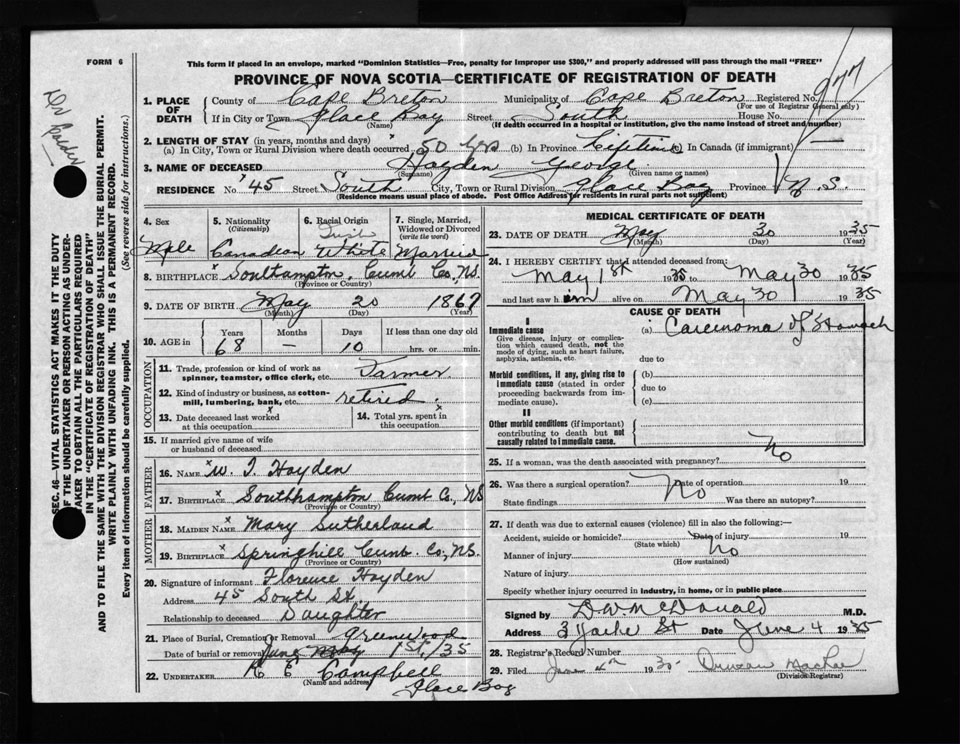 FORM 6
This form if placed in an envelope, marked "Dominion Statistics—Free, penalty for improper use $300," and properly addressed will pass through the mail "FREE"
PROVINCE OF NOVA SCOTIA—CERTIFICATE OF REGISTRATION OF DEATH
1. PLACE OF DEATH
County of Cape Breton Municipality of Cape Breton Registered No. 977
(For use of Registrar General only)
If in City or Town Glace Bay Street South House No.
(Name) (If death occurred in a hospital or institution, give the name instead of street and number)
2. LENGTH OF STAY (in years, months and days)
(a) In City, Town or Rural Division where death occurred 50 yrs (b) In Province Lifetime (c) In Canada (if immigrant)
3. NAME OF DECEASED Hayden George
(Surname) (Given name or names)
RESIDENCE No 45 Street South City, Town or Rural Division Glace Bay Province N.S.
(Residence means usual place of abode. Post Office Address for residents in rural parts not sufficient)
4. Sex Male
5. Nationality (Citizenship) Canadian
6. Racial Origin White
7. Single, Married, Widowed or Divorced (write the word) Married
8. BIRTHPLACE Southampton, Cumb Co., N.S.
(Province or Country)
9. DATE OF BIRTH May 20 1867
(Month) (Day) (Year)
10. AGE in Years Months Days If less than one day old
68 — 10 hrs. or min.
OCCUPATION
11. Trade, profession or kind of work as spinner, teamster, office clerk, etc. Farmer
12. Kind of industry or business, as cotton-mill, lumbering, bank, etc. retired.
13. Date deceased last worked at this occupation
14. Total yrs. spent in this occupation
15. If married give name of wife or husband of deceased
FATHER
16. NAME W. T. Hayden
17. BIRTHPLACE Southhampton Cumb Co., NS
(Province or Country)
MOTHER
18. MAIDEN NAME Mary Sutherland
19. BIRTHPLACE Springhill Cumb. Co., NS.
(Province or Country)
20. Signature of informant Florence Hayden
Address 45 South St.
Relationship to deceased Daughter
21. Place of Burial, Cremation or Removal Greenwood
Date of burial or removal June 1st/35
22. UNDERTAKER R E Campbell
(Name and address)
Glace Bay
MEDICAL CERTIFICATE OF DEATH
23. DATE OF DEATH May 30 1935
(Month) (Day) (Year)
24. I HEREBY CERTIFY that I attended deceased from:
May 1st 1935 to May 30 1935
and last saw him alive on May 30 1935
CAUSE OF DEATH
I
Immediate cause
Give disease, injury or complication which caused death, not the mode of dying, such as heart failure, asphyxia, asthenia, etc.
(a) Carcinoma of Stomach
due to
Morbid conditions, if any, giving rise to immediate cause (stated in order proceeding backwards from immediate cause).
(b)
due to
(c)
II
Other morbid conditions (if important) contributing to death but not causally related to immediate cause.
25. If a woman, was the death associated with pregnancy? No
26. Was there a surgical operation? No Date of operation 19
State findings Was there an autopsy?
27. If death was due to external causes (violence) fill in also the following:—
Accident, suicide or homicide? Date of injury 19
(State which) No
Manner of injury
(How sustained)
Nature of injury
Specify whether injury occurred in industry, in home, or in public place
Signed by D.W. McDonald M.D.
Address St Date June 4 1935
28. Registrar's Record Number
29. Filed June 4th 1935 Duncan
(Division Registrar)
SEC. 46—VITAL STATISTICS ACT MAKES IT THE DUTY
OF THE UNDERTAKER OR PERSON ACTING AS UNDERTAKER TO OBTAIN ALL THE PARTICULARS REQUIRED
IN THE "CERTIFICATE OF REGISTRATION OF DEATH"
AND TO FILE THE SAME WITH THE DIVISION REGISTRAR WHO SHALL ISSUE THE BURIAL PERMIT.
WRITE PLAINLY WITH UNFADING INK. THIS IS A PERMANENT RECORD.
Every item of information should be carefully supplied. (See reverse side for instructions.)